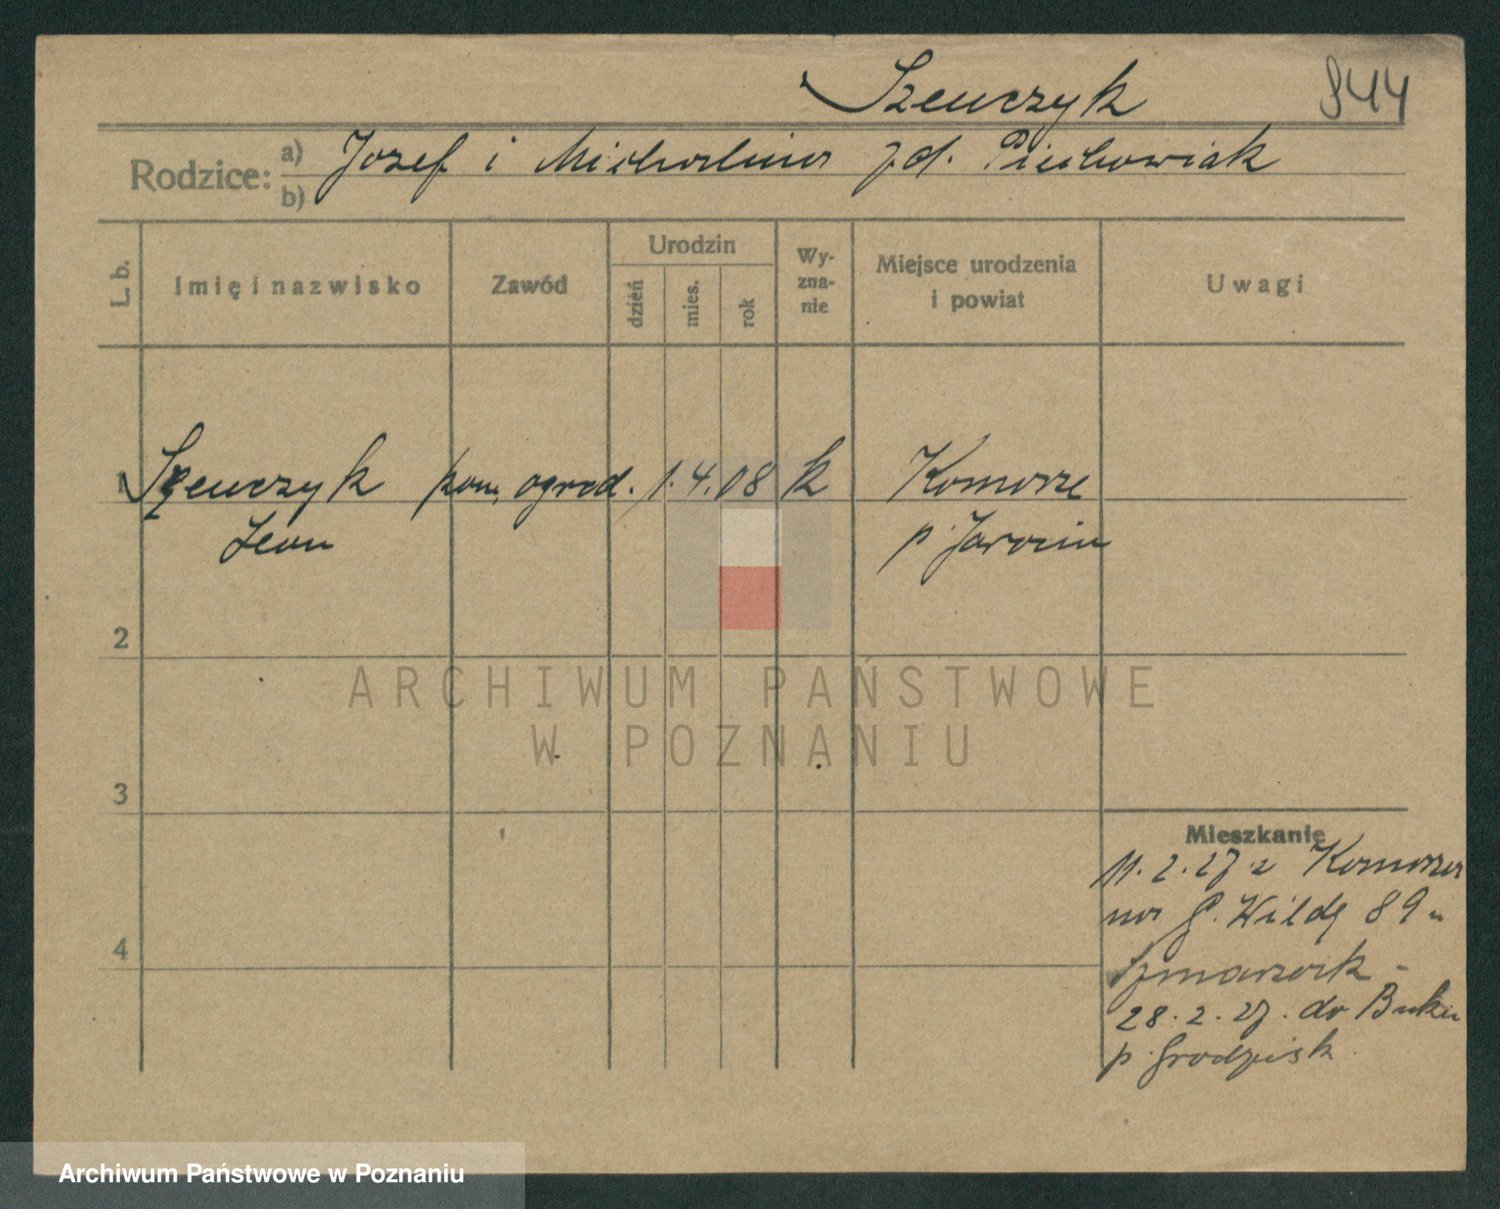 Szewczyk 844
Rodzice: a) Jozef i Michalina z d. Piechowiak
b)
L. b. Imię i nazwisko Zawód Urodzin Wyznanie Miejsce urodzenia i powiat Uwagi
dzień mies. rok
1 Szewczyk pom. ogrod. 1. 4. 08 k Komorze
Leon p. Jarocin
2
ARCHIWUM PAŃSTWOWE
W POZNANIU
3
Mieszkanie
11. 2. 27 z Komorza
na G. Wildę 89 u
4
Szmarzak -
28. 2. 27. do Buku
p. Grodzisk
Archiwum Państwowe w Poznaniu